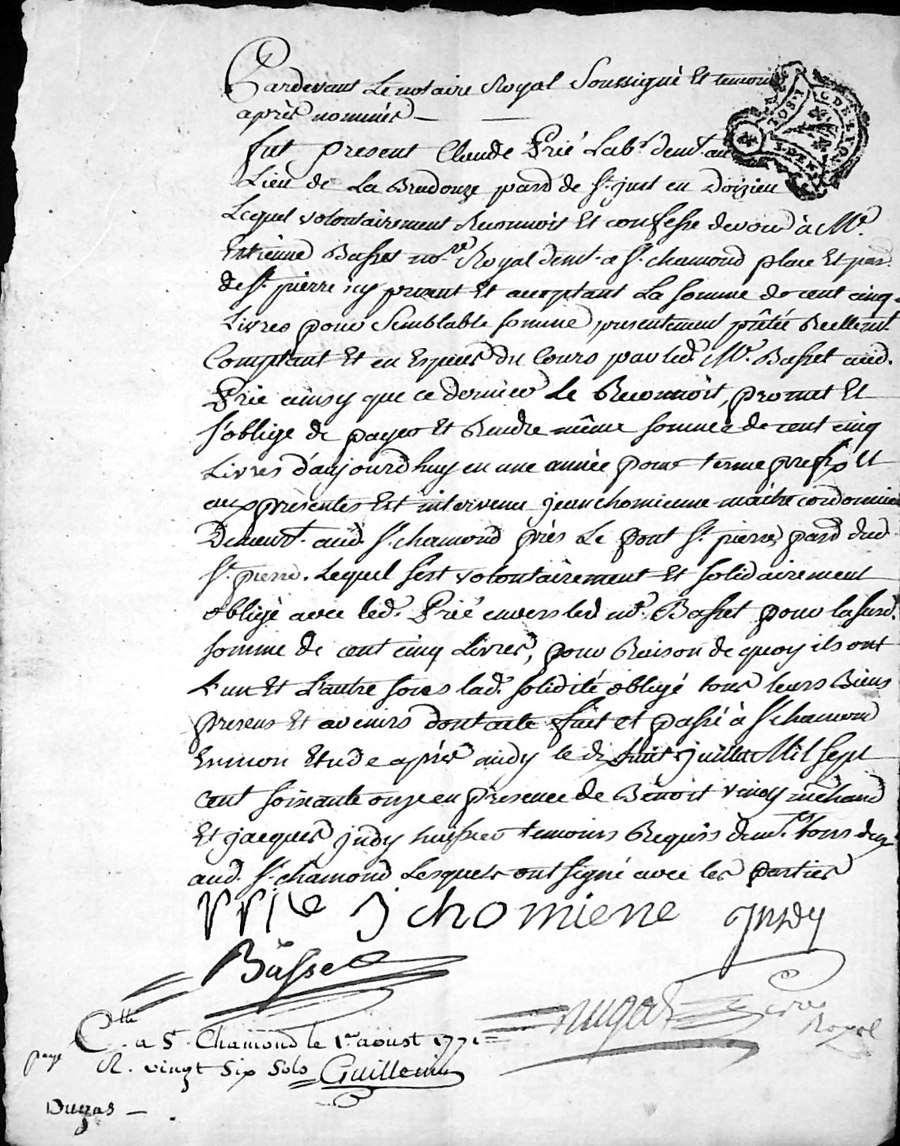 Pardevant Le notaire Royal Soussigné Et temoins
après nommés
fut present Claude Prié Labr. demt. au
Lieu de La paroisse de St. just en Doizieu
Lequel volontairement Reconnoit Et confesse devoir à Mr.
Estienne Basset nore. Royal demt. a St. chamond place Et par.
de St. pierre icy present Et acceptant La somme de cent cinq
Livres pour Semblable somme presentement prêtée Reellemt.
Comptant Et en Especes du Cours par led. Mr. Basset aud.
Prié ainsy que ce dernier Le Reconnoit, promet Et
s'oblige de payer Et Rendre même somme de cent cinq
Livres d'aujourd'huy en une année pour terme prefix Et
aux présentes Est intervenu jean chomienne maitre cordonnier
Demeurt. aud. St. chamond près Le pont St. pierre pard. dud.
St. pierre. Lequel s'est volontairement Et solidairement
obligé avec led. Prié envers led. mr. Basset pour la susd.
somme de cent cinq Livres, pour Raison de quoy ils ont
L'un Et L'autre sous lad. solidité obligé tous leurs Biens
presens Et avenirs dont acte fait et passé à St. chamond
En mon Etude après midy le dix huit juillet Mil sept
cent soixante onze en presence de Benoit
Et jacques judy huissier temoins Requis demts. tous deux
aud. St. chamond Lesquels ont signé avec les parties
prié j chomiene judy
Basset
Dugas Nore Royal
Clle. a St. Chamond le 1er aoust 1771
paye R. vingt Six Sols Guillemin
Dugas